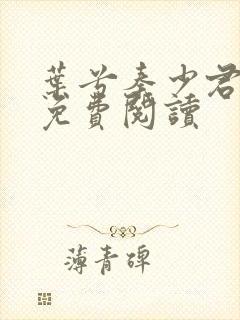 葉兮秦少君
免費閱讀
薄青碑